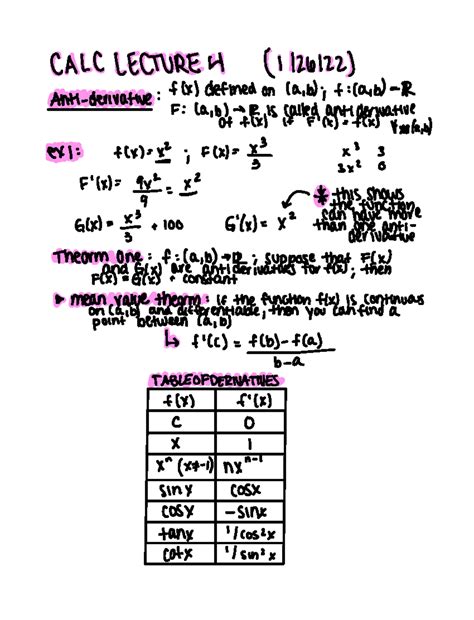 CALC LECTURE 4 (1/26/22)
Anti-derivative: f(x) defined on (a,b); f:(a,b)→ℝ
F: (a,b)→ℝ is called antiderivative
of f(x) if F'(x) = f(x) ∀x∈(a,b)
ex1: f(x)=x² ; F(x)= x³/3 x³ 3
3x² 0
F'(x)= 9x²/9 = x²
* this shows
the function
can have more
than one anti-
derivative
G(x)= x³/3 + 100 G'(x)= x²
Theorm one: f:(a,b)→ℝ; suppose that F(x)
and G(x) are antiderivatives for f(x), then
F(x)=G(x) + constant
▸ mean value theorm: is the function f(x) is continuous
on (a,b) and differentiable, then you can find a
point between (a,b)
↳ f'(c) = f(b)-f(a)/b-a
TABLE OF DERIVATIVES
f(x) f'(x)
C 0
x 1
xⁿ (x≠-1) nxⁿ⁻¹
sinx cosx
cosx -sinx
tanx 1/cos²x
cotx 1/sin²x